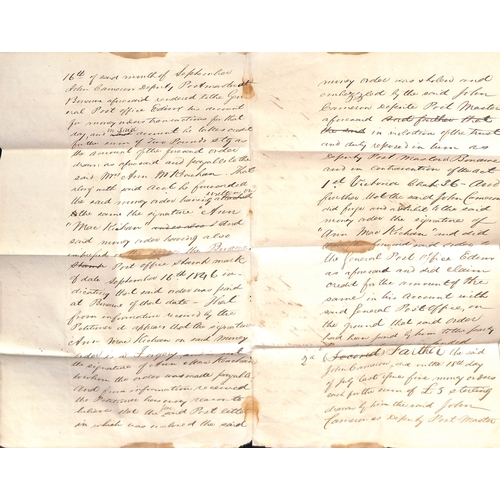 16th of said month of September
John Cameron Deputy Postmaster
aforesaid rendered to the Gen
eral Post office Edinr his account
for money order transactions for that
day and in said account he takes credit
for the sum of Two Pounds
as the amount of the second order
drawn as aforesaid and payable to the
said Mrs Ann McKechan That
along with said Acct he forwarded
the said money order having
written on
to the same the signature Ann
"MacKichan and
said money order having also
the
Post office Stamp mark
of date September 16th 1846 in
dicating that said order was paid
at of that date - That
from information received by the
Petitioner it appears that the signature
Ann MacKichan on said money
order is a forgery
the signature of Ann MacKechan
to whom the order was made payable
and from information received
the Petitioner has every reason to
believe that the said Post letter
in which was enclosed the said
money order was stolen and
embezzled by the said John
Cameron Depute Post Master
aforesaid said further that
the said in violation of the trust
and duty reposed in him as
Deputy Post Master
and in contravention of the act
1st Victoria Chap 36 - And
further that the said John Cameron
did forge and to the said
money order the signature of
"Ann MacKichan" and did
said order to
the General Post office Edinr
as aforesaid and did claim
credit for the amount of the
same in his account with
said General Post Office, on
the ground that said order
had been paid by him to the party
2d (Second) That the said
John Cameron, did on the 18th day
of July last issue five money orders
each for the sum of £5 sterling
drawn by him the said John
Cameron as Deputy Post-Master